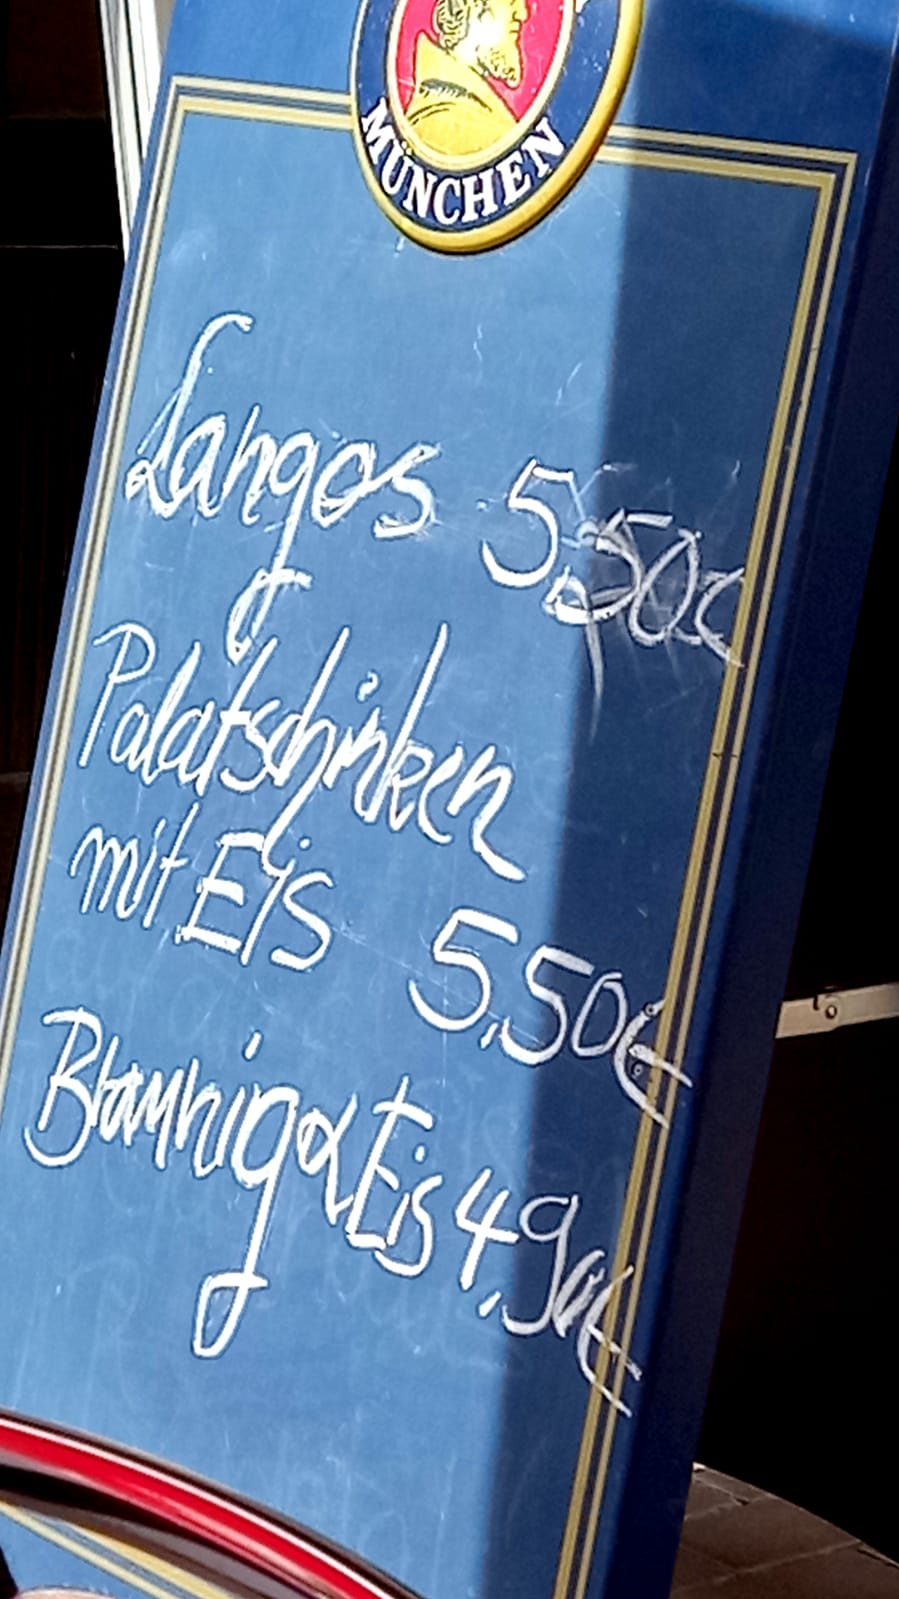 MÜNCHEN
Langos 5,50€
Palatschinken
mit EIS 5,50€
Eis 4,90€